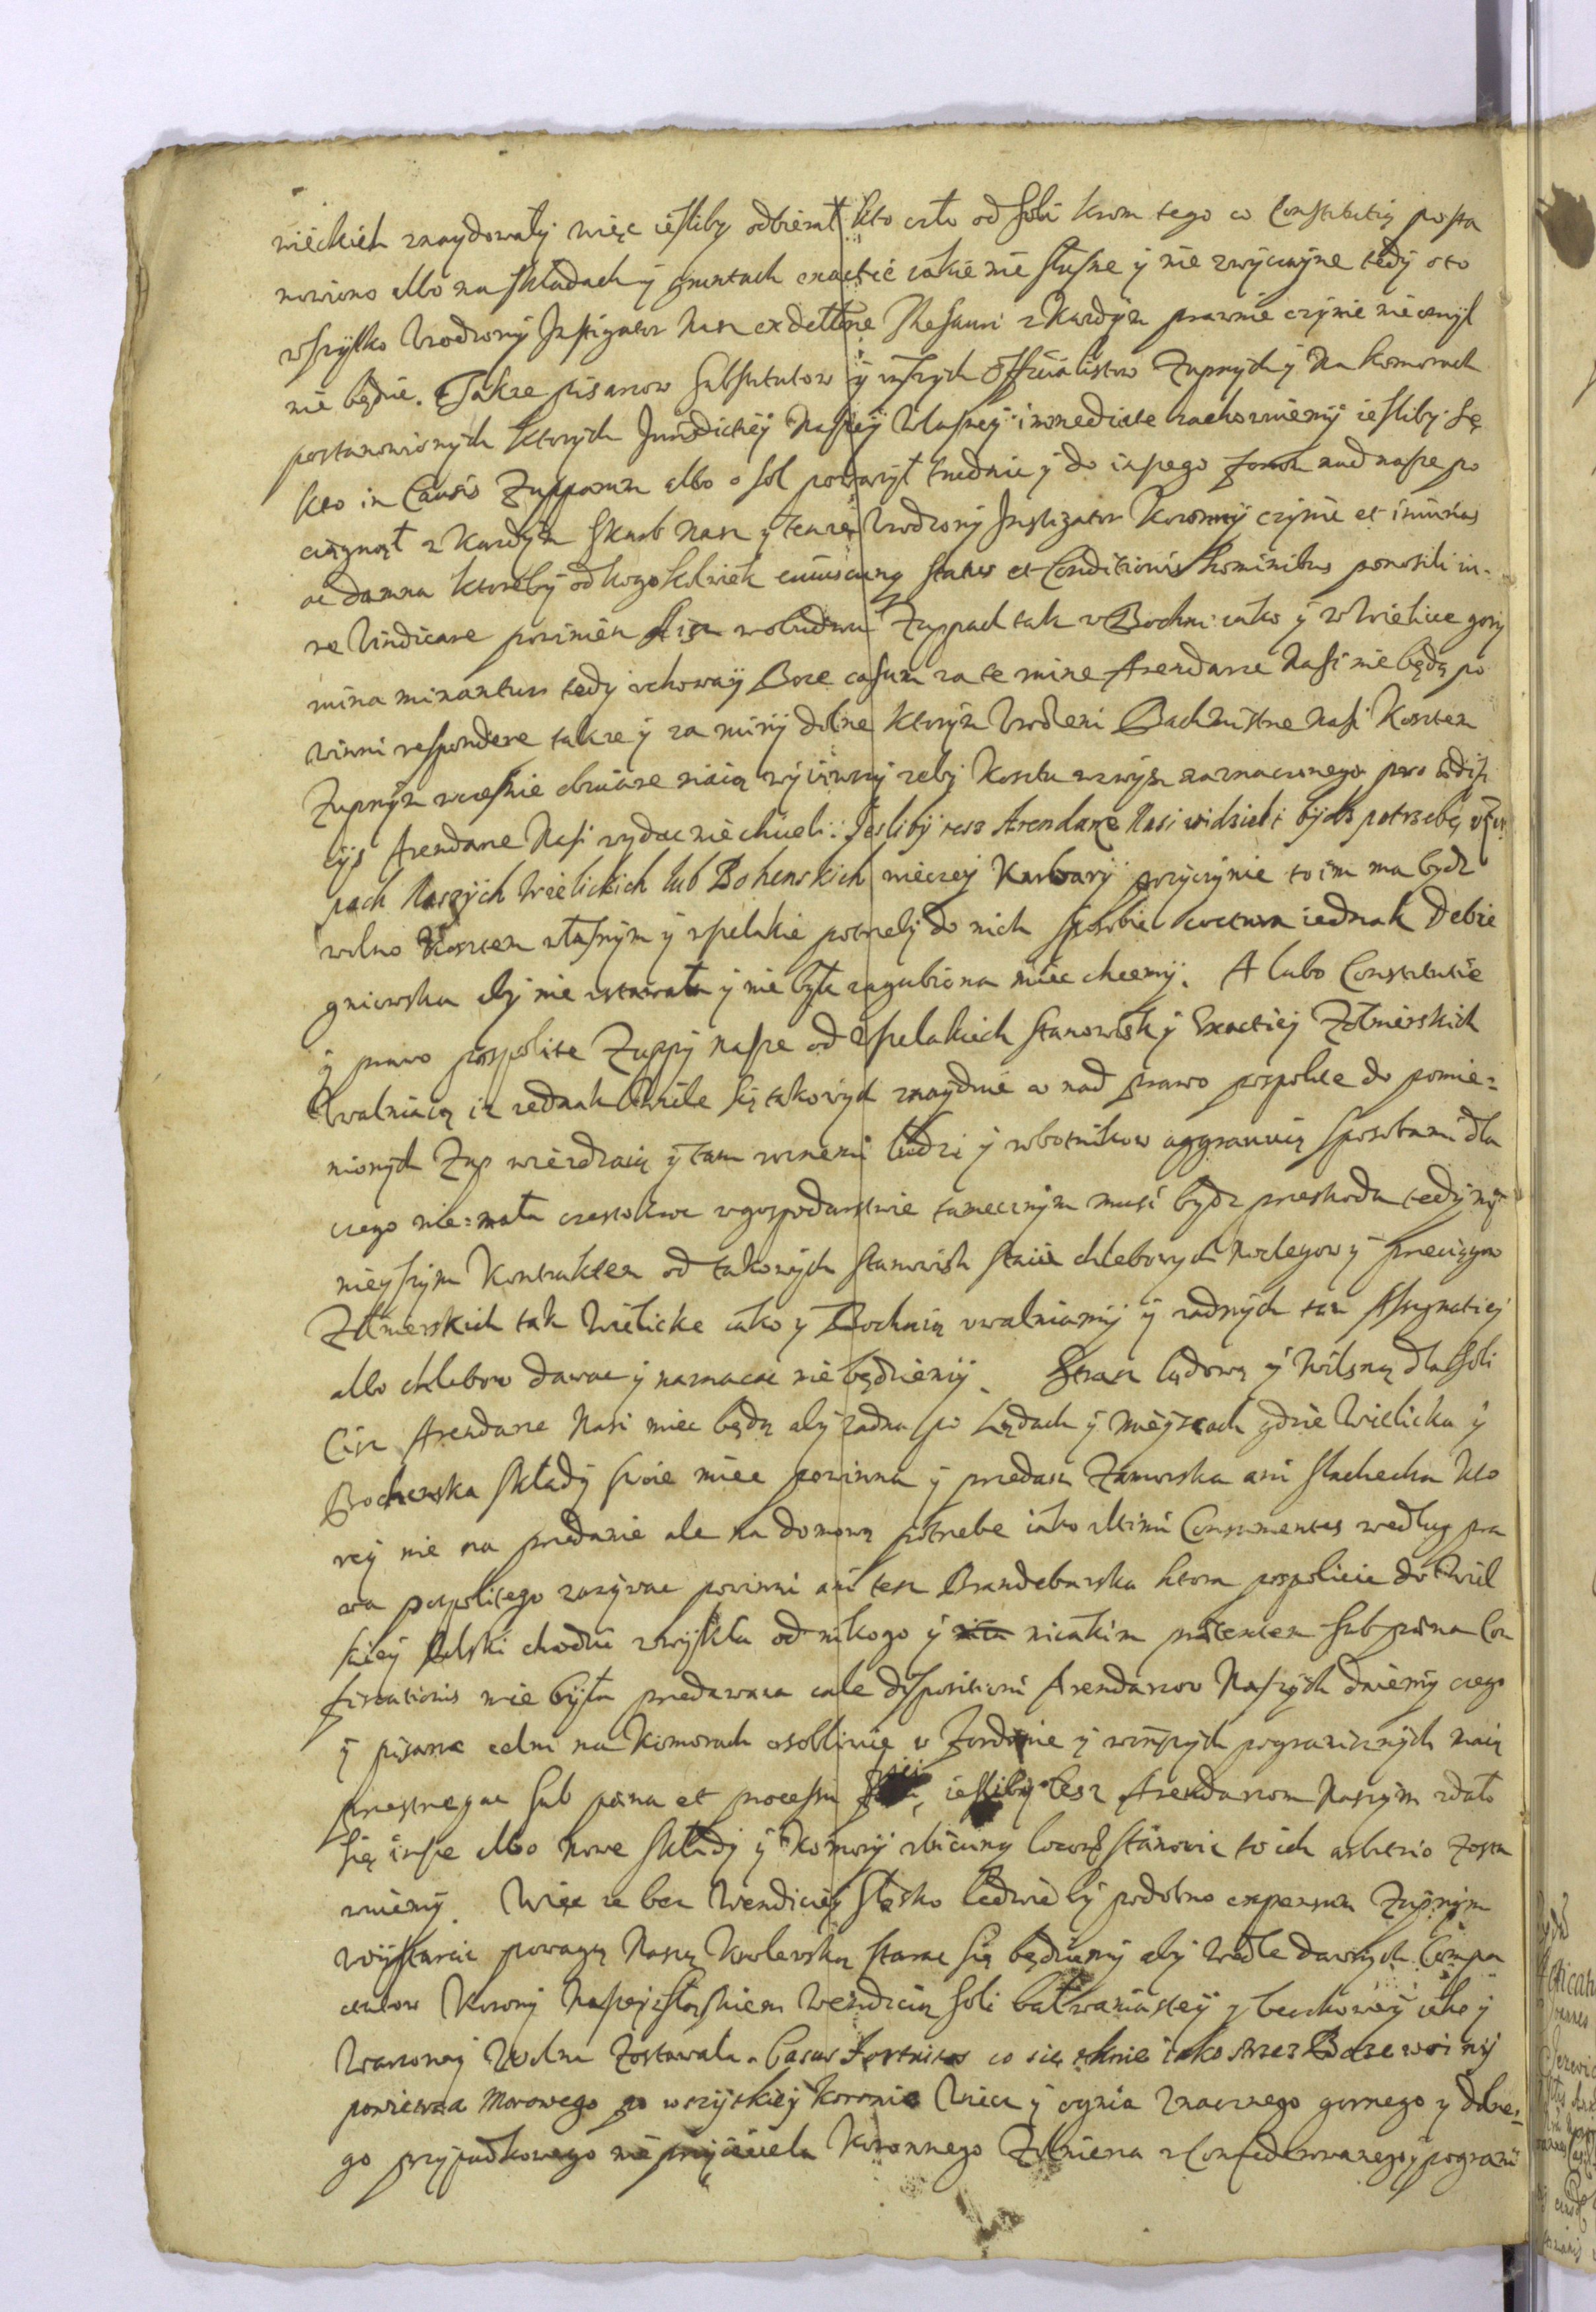 wieckich znaydowały więc iesliby odbierał kto czło od Soli krom tego co Constitutią posta
nowiono albo na składach y gruntach exactie iakie nie słusne y nie zwyczayne tedy oto
wszytko Urodzony Instigator Nasz ex delle Thesauri z każdym prawnie czynic nieomył
nie będzie. Takze pisarzow Substitutow y inszych Officialistow Zupnych y Na komorach
postanowionych ktorych Jurisdictiey Naszey Własney immediate zachowuiemy iesliby Się
kto in Causis Zupparum albo o Sol poważył trudnic y do inszego forum nad nasze po
ciągnął z każdym Skarb Nasz y tenze Urodzony Instigator Koronny czynic et iniurias
ac damna ktoreby od kogo kolwiek cuiuscunq status et Conditionis hominibus ponosili iu-
re Vindicare powinien A isz w obudwu Zuppach tak w Bochni iako y w Wieliczce gory
ruina minantur tedy uchoway Boze casum za te ruine Arendarze Nasi nie będą po
winni respondere takze y za ruiny dolne ktorym Urodzeni Bachmistrze Nasi Kosztem
Zupnym wczesnie obwiare maią wyiąwszy zeby Kosztu wzwysz zaznaczonego pro ædifi
cijs Arendarze Nasi wydac niechcieli: Jesliby tesz Arendarze Nasi widzieli bydz potrzebę w Zup
pach Naszych Wielickich lub Bohenskich wieczey Karbary przyczynic to im ma bydz
wolno Kosztem własnym y wszelakie potrzeby do nich Sposobic coctura iednak Debie
gniewska aby nie ustawała y nie była zagubiona miec chcemy. A lubo Constitutie
y prawo pospolite Zuppy nasze od wszelakich Stanowisk y Exactiey Zołnierskich
Uwalniaią isz iednak Wiele Się takowych znayduie co nad prawo pospolite do pomie=
nionych Zup wiezdzaią y tam roznemi ludzi y robotnikow aggrauuią sposobami dla
czego nie=mała czestokroc w gospodarstwie tamecznym musi bydz przeskoda tedy ni
nieyszym Kontraktem od takowych Stanowisk Staciy chlebowych Noclegow y przeciągow
Zołnierskich tak Wielicke iako y Bochnią uwalniamy y zadnych tam Assignatiey
albo chlebow dawac y naznaczac nie będziemy. Straz lądową y Wislną dla Soli
Cisz Arendarze Nasi miec będą aby zadna po Lądach y mieyscach gdzie Wielicka y
Bochenska Składy Swoie miec powinna y przedasz Zamorska ani Slachecka kto
rey nie na przedanie ale na domową potrzebe iako ultimi Consumentes według pra
wa pospolitego zazywac powinni ani tesz Brandeburska ktora pospolicie do Wiel
kiey Polski chodzic zwykła od nikogo y niiakim prætextem sub pœna Con
fiscationis nie była przedawana cale dispositioni Arendarzow Naszych daiemy czego
y pisarze celni na Komorach osobliwie w Fordonie y w inszych pogranicznych maią
przestrzegac Sub pœna et processu iesliby tesz Arendarzom Naszym zdało
Się insze albo Nowe Składy y Komory ubicunq locorum stanowic to ich arbitrio zosta
wuiemy. Więc ze bez Wendiciey Sląsko ledwie by podobno expensom Zupnym
wystarcic powagą Naszą Krolewską starac Się będziemy aby Wedle dawnych Compa
ctatow Korony Naszey z Sląskiem Wendicia Soli bałwaniastey y beczkowey iako y
Warzoney Wolna Zostawała. Casus Fortuitos co się tknie iako strzez Boze woiny
powietrza Morowego po wszystkiey koronie Unica y ognia Znacznego gornego y dolne=
go przypadkowego nieprzyiaciela Koronnego Zołnierza z Confederowanego y pograni